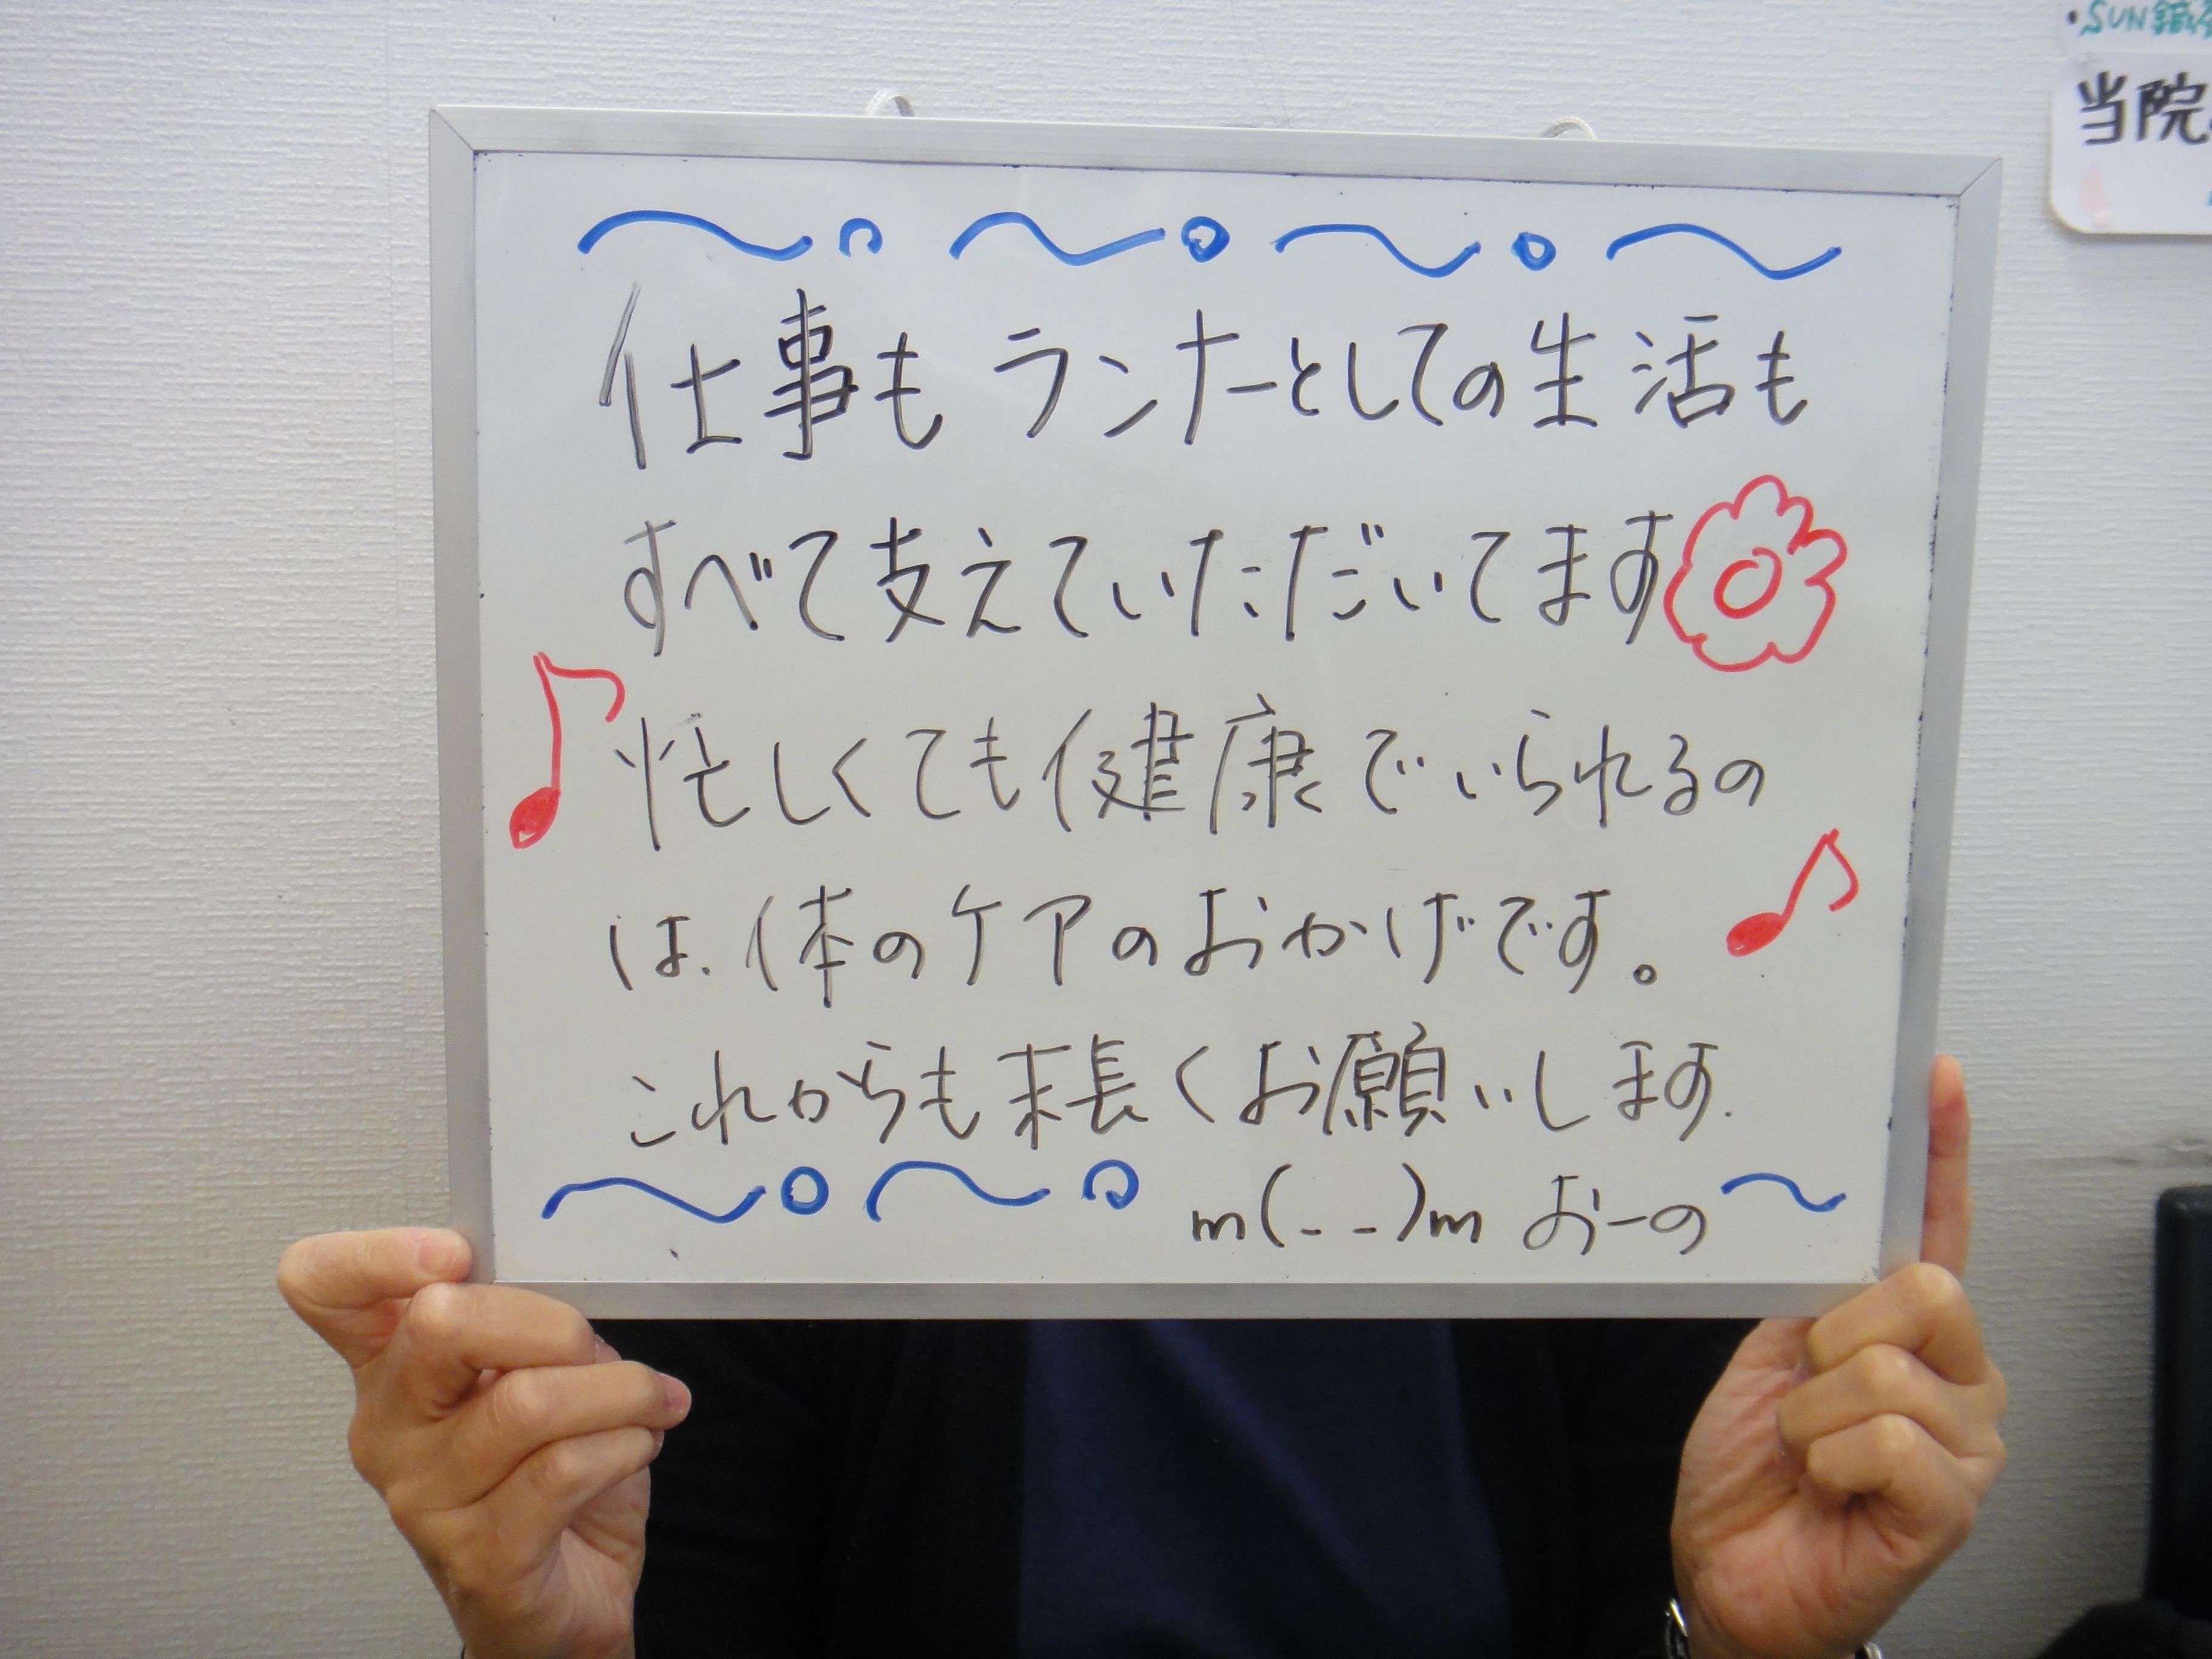 ・SUN鍼
当院
仕事も ランナーとしての生活も
すべて支えていただいてます
忙しくても健康でいられるの
は、体のケアのおかげです。
これからも末長くお願いします.
m(- -)m おーの